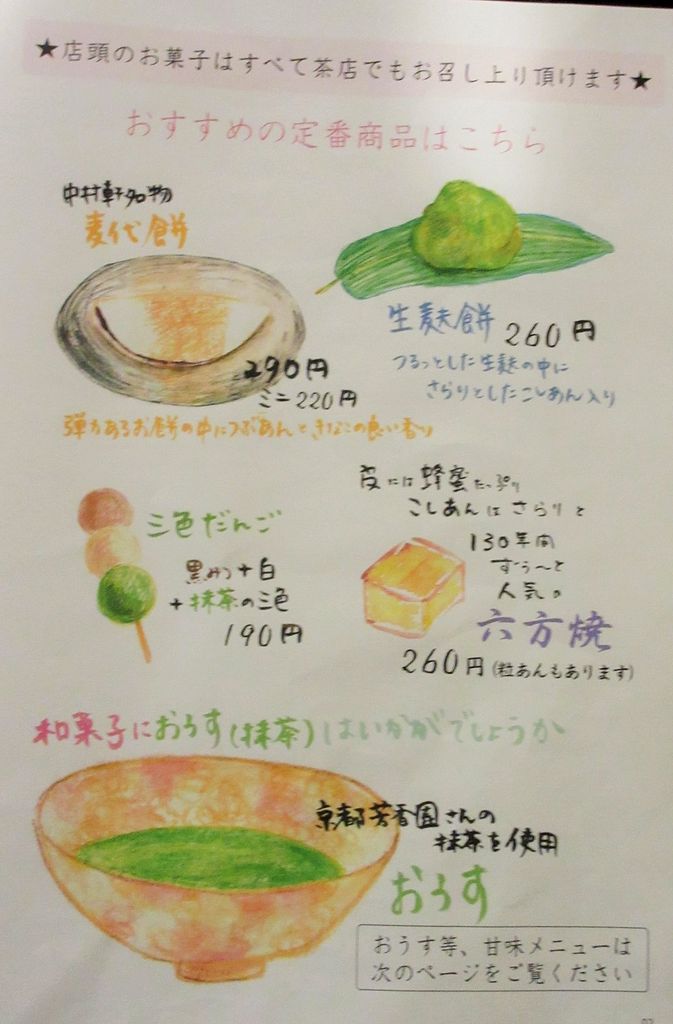 ★店頭のお菓子はすべて茶店でもお召し上り頂けます★
おすすめの定番商品はこちら
中村軒名物
麦代餅
290円
ミニ220円
弾力あるお餅の中につぶあんときなこの良い香り
生麸餅 260円
つるっとした生麸の中に
さらりとしたこしあん入り
三色だんご
黒みつ+白
+抹茶の三色
190円
皮には蜂蜜たっぷり
こしあんはさらりと
130年間
ずぅ〜と
人気の
六方焼
260円(粒あんもあります)
和菓子におうす(抹茶)はいかがでしょうか
京都芳香園さんの
抹茶を使用
おうす
おうす等、甘味メニューは
次のページをご覧ください